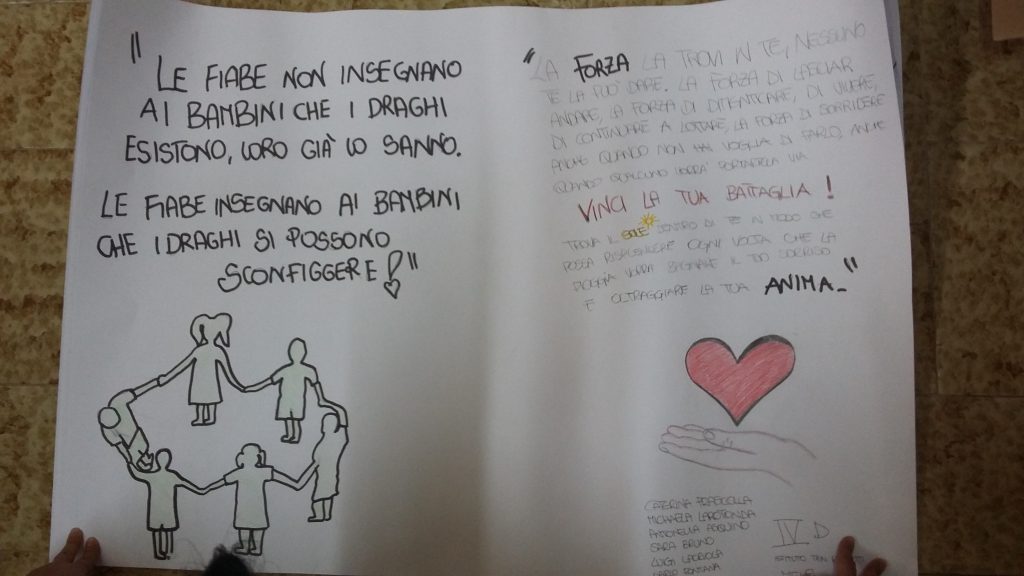 "LE FIABE NON INSEGNANO
AI BAMBINI CHE I DRAGHI
ESISTONO, LORO GIÀ LO SANNO.
LE FIABE INSEGNANO AI BAMBINI
CHE I DRAGHI SI POSSONO
SCONFIGGERE!"
"LA FORZA LA TROVI IN TE, NESSUNO
TE LA PUÒ DARE. LA FORZA DI LASCIAR
ANDARE, LA FORZA DI DIMENTICARE, DI VIVERE,
DI CONTINUARE A LOTTARE, LA FORZA DI SORRIDERE
ANCHE QUANDO NON HAI VOGLIA DI FARLO, ANCHE
QUANDO QUALCUNO VORRÀ PORTARTELA VIA
VINCI LA TUA BATTAGLIA!
TROVA IL SOLE DENTRO DI TE IN MODO CHE
POSSA RISPLENDERE OGNI VOLTA CHE LA
PIOGGIA VORRÀ BAGNARE IL TUO SORRISO
E OLTRAGGIARE LA TUA ANIMA_"
CATERINA
MICHAELA LAROTONDA
ANTONELLA
SARA BRUNO
LUIGI
IV D